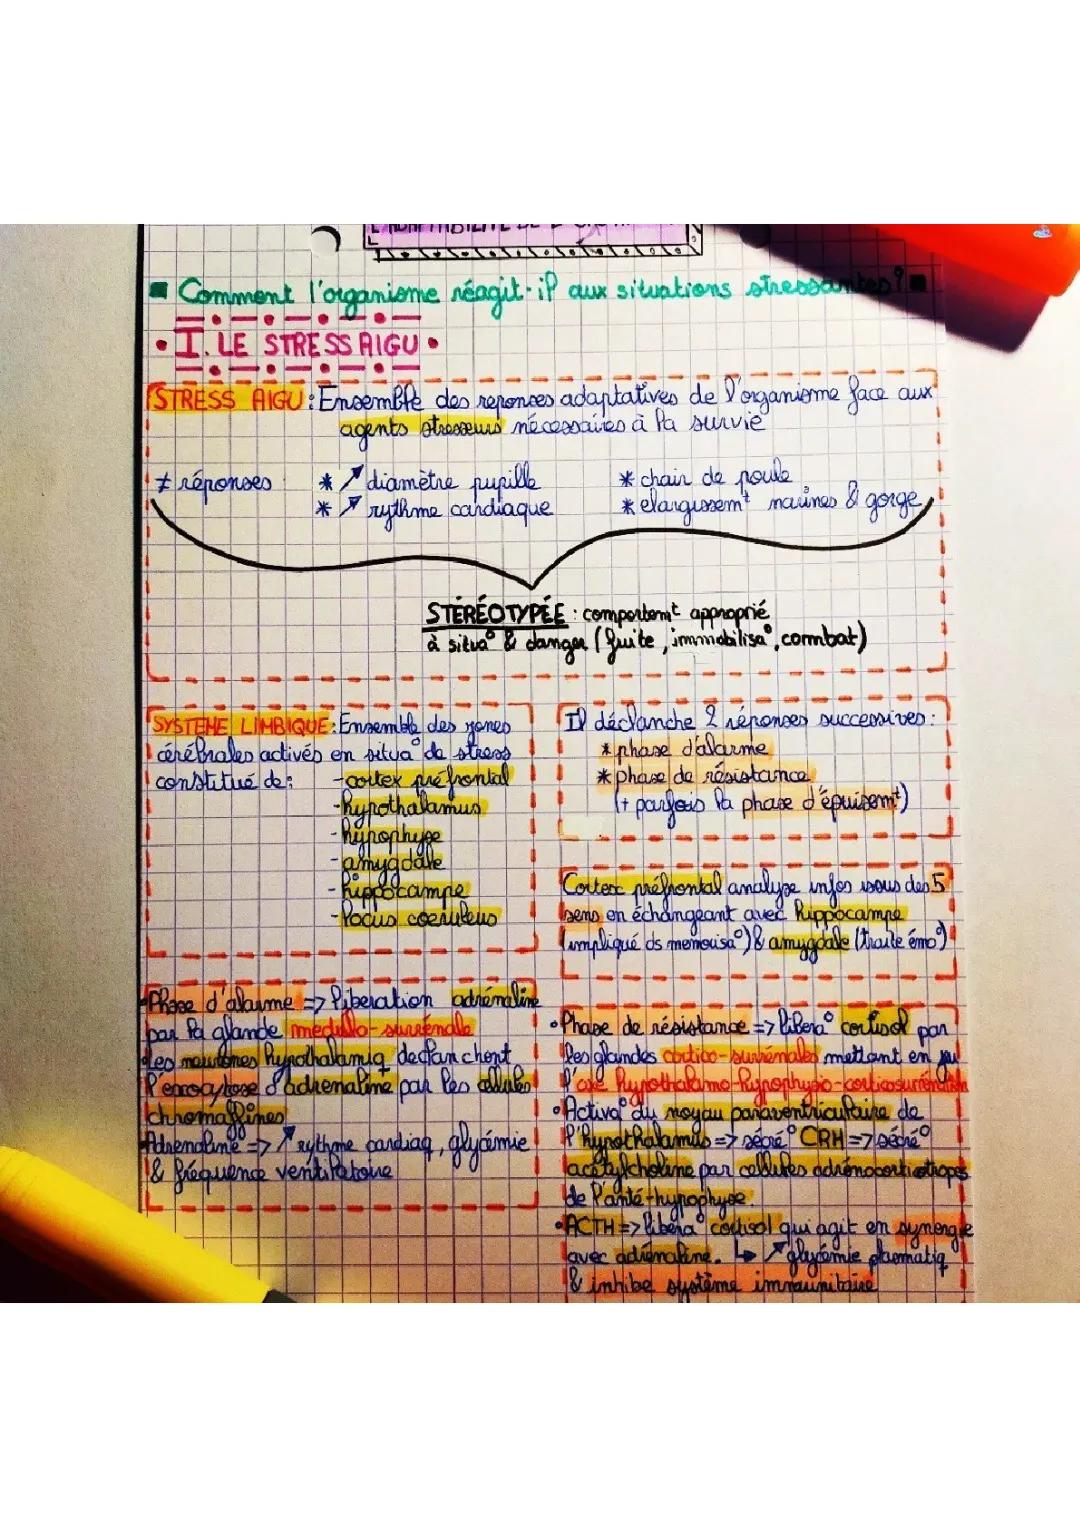 ■ Comment l'organisme réagit-il aux situations stressantes? ■
• I. LE STRESS AIGU •
STRESS AIGU : Ensemble des reponses adaptatives de l'organisme face aux
agents stresseurs nécessaires à la survie
≠ réponses
* ↗ diamètre pupille
* ↗ rythme cardiaque
* chair de poule
* elargissemt narines & gorge
STÉRÉOTYPÉE : comportemt approprié
à situa° & danger (fuite, immobilisa°, combat)
SYSTEME LIMBIQUE : Ensemble des zones
cérébrales activés en situa° de stress
constitué de :
- cortex préfrontal
- hypothalamus
- hypophyse
- amygdale
- hippocampe
- locus coeruleus
Il déclanche 2 réponses successives :
* phase d'alarme
* phase de résistance
(+ parfois la phase d'épuisemt)
Cortex préfrontal analyse infos issus des 5
sens en échangeant avec hippocampe
(impliqué ds memorisa°) & amygdale (traite émo°)
• Phase d'alarme => liberation adrénaline
par la glande médullo-surrénale
Les neurones hypothalamiq declanchent
l'exocytose d'adrenaline par les cellules
chromaffines
Adrenaline => ↗ rythme cardiaq, glycémie
& fréquence ventilatoire
• Phase de résistance => libéra° cortisol par
les glandes cortico-surrénales mettant en jeu
l'axe hypothalamo-hypophyso-corticosurrénalien
• Activa° du noyau paraventriculaire de
l'hypothalamus => sécré° CRH => sécré°
acétylcholine par cellules adrénocorticotropes
de l'anté-hypophyse.
• ACTH => libéra° cortisol qui agit en synergie
avec adrénaline. ↳ ↗ glycémie plasmatiq
& inhibe système immunitaire